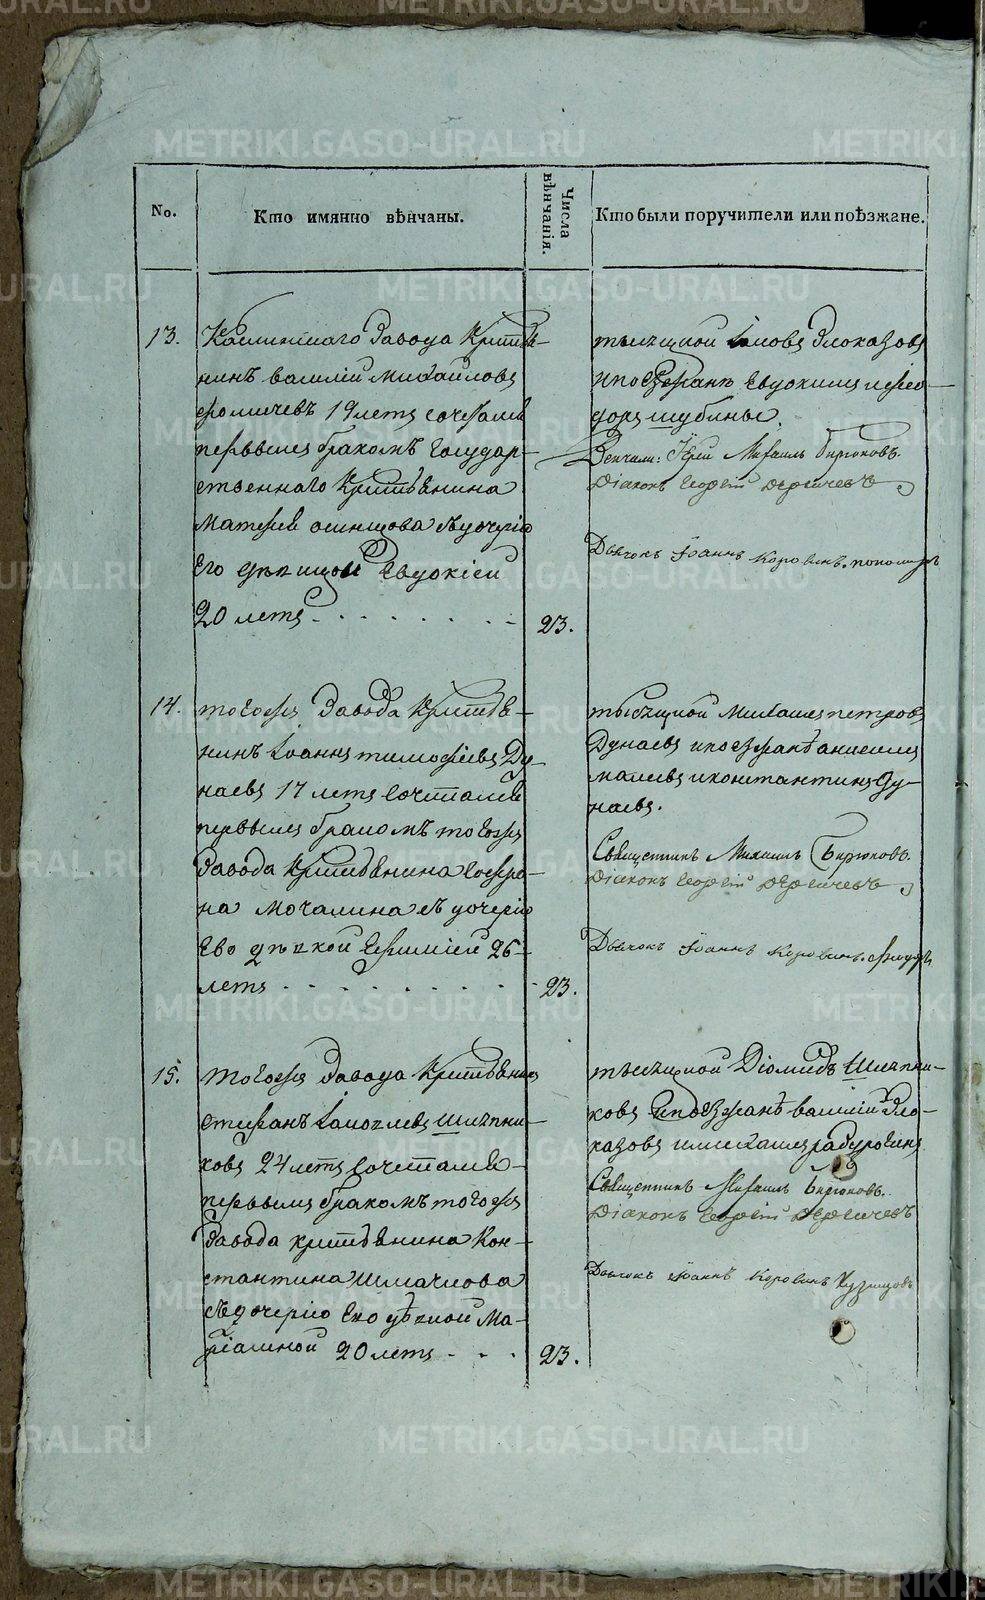 No.
Кто имянно вѣнчаны.
Числа вѣнчанія.
Кто были поручители или поѣзжане.
13.
Каслинскаго Завода Крестья-
нинъ василій михайловъ
19 летъ сочетался
первымъ бракомъ Государ-
ственнаго Крестьянина
съ дочерью
Его дѣвицой Евдокіей
20 летъ
23.
тысяцкой Іаковъ Злоказовъ
и поезжанѣ Евдокимъ и Фео-
доръ шубины.
Венчали: Іерей Михаилъ Бирюковъ.
Діаконъ Георгій
Дьячокъ Іоаннъ Коровинъ. пономарь
14.
тогожъ Завода Крестья-
нинъ Іоаннъ тимофѣевъ Ду-
наевъ 17 летъ Сочетался
первымъ бракомъ тогожъ
Завода Крестьянина
на мочалина съ дочерью
Ево дѣвкой Евфиміей 26
летъ
23.
тысяцкой Михаилъ петровъ
Дунаевъ и поезжанѣ
и константинъ Ду-
наевъ.
Священникъ Михаилъ Бирюковъ.
Діаконъ Георгій
Дьячокъ Іоаннъ Коровинъ.
15.
тогожъ Завода Крестьянинъ
стефанъ Іаковлевъ Шляпни-
ковъ 24 летъ Сочетался
первымъ бракомъ тогожъ
Завода крестьянина Кон-
стантина
съ дочерью Его дѣвкой Ма-
ріамной 20 летъ
23.
тысяцкой Діомидъ Шляпни-
ковъ и поезжанѣ василій Зло-
казовъ и михаилъ
Священникъ Михаилъ Бирюковъ.
Діаконъ Георгій
Дьячокъ Іоаннъ Коровинъ Кузнецовъ
METRIKI.GASO-URAL.RU